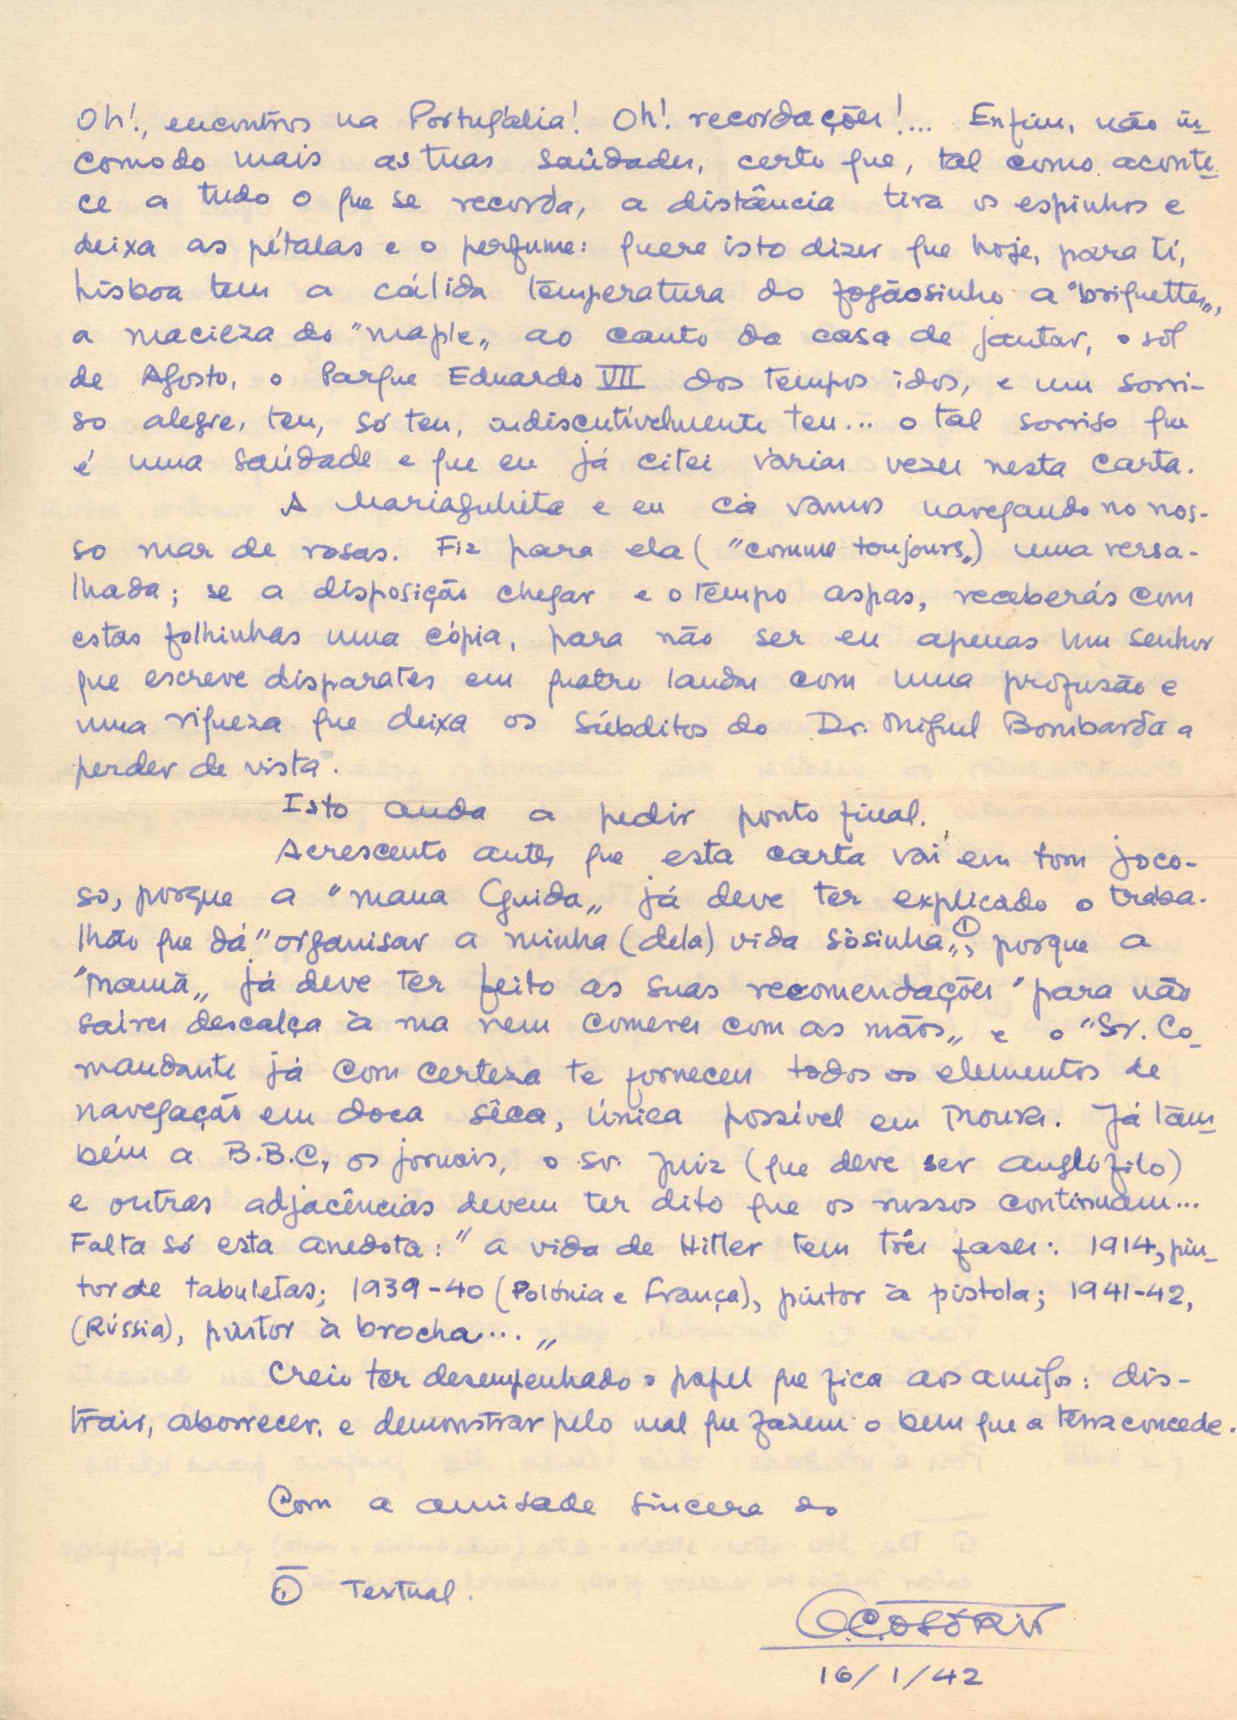 Oh!, encontros na Portugália! Oh! recordações!... Enfim, não in-
comodo mais as tuas saüdades, certo que, tal como aconte-
ce a tudo o que se recorda, a distância tira os espinhos e
deixa as pétalas e o perfume: quere isto dizer que hoje, para ti,
Lisboa tem a cálida temperatura do fogãosinho a "briquettes„,
a macieza do "maple„ ao canto da casa de jantar, o sol
de Agosto, o Parque Eduardo VII dos tempos idos, e um sorri-
so alegre, teu, só teu, indiscutívelmente teu... o tal sorriso que
é uma saüdade e que eu já citei várias vezes nesta carta.
A Mariagulita e eu cá vamos navegando no nos-
so mar de rosas. Fiz para ela ("comme toujours„) uma versa-
lhada; se a disposição chegar e o tempo aspas, receberás com
estas folhinhas uma cópia, para não ser eu apenas um senhor
que escreve disparates em quatro laudas com uma profusão e
uma riqueza que deixa os súbditos do Dr. Miguel Bombarda a
perder de vista.
Isto anda a pedir ponto final.
Acrescento antes que esta carta vai em tom joco-
so, porque a "mana Guida„ já deve ter explicado o traba-
lhão que dá "organisar a minha (dela) vida sòsinha„①, porque a
"mamã„ já deve ter feito as suas recomendações "para não
saires descalça à rua nem comeres com as mãos„ e o "Sr. Co-
mandante já com certeza te forneceu todos os elementos de
navegação em doca sêca, única possível em Moura. Já tam-
bém a B.B.C., os jornais, o sr. Juiz (que deve ser anglófilo)
e outras adjacências devem ter dito que os russos continuam...
Falta só esta anedota: "a vida de Hitler tem três fases: 1914, pin-
tor de tabuletas; 1939-40 (Polónia e França), pintor à pistola; 1941-42,
(Rússia), pintor à brocha...„
Creio ter desempenhado o papel que fica aos amigos: dis-
trair, aborrecer, e demonstrar pelo mal que fazem o bem que a terra concede.
Com a amisade sincera do
① Textual.
C. OSÓRIO
16/1/42